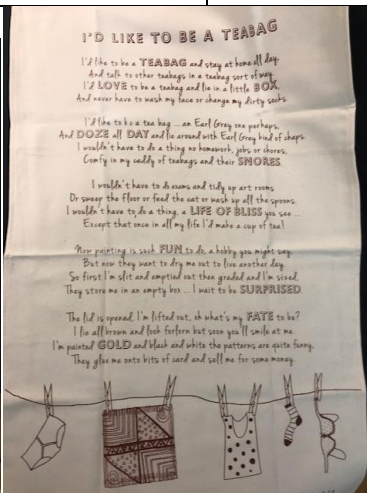 I'D LIKE TO BE A TEABAG
I'd like to be a TEABAG and stay at home all day.
And talk to other teabags in a teabag sort of way.
I'd LOVE to be a teabag and lie in a little BOX,
And never have to wash my face or change my dirty socks.
I'd like to be a tea bag ... an Earl Grey one perhaps,
And DOZE all DAY and lie around with Earl Grey kind of chaps.
I wouldn't have to do a thing no homework, jobs or chores,
Comfy in my caddy of teabags and their SNORES.
I wouldn't have to do exams and tidy up art rooms
Or sweep the floor or feed the cat or wash up all the spoons.
I wouldn't have to do a thing, a LIFE OF BLISS you see ...
Except that once in all my life I'd make a cup of tea!
Now painting is such FUN to do, a hobby you might say.
But now they want to dry me out to live another day.
So first I'm slit and emptied out then graded and I'm sized.
They store me in an empty box ... I wait to be SURPRISED
The lid is opened, I'm lifted out, oh what's my FATE to be?
I lie all brown and look forlorn but soon you'll smile at me.
I'm painted GOLD and black and white the patterns are quite funny.
They glue me onto bits of card and sell me for some money.